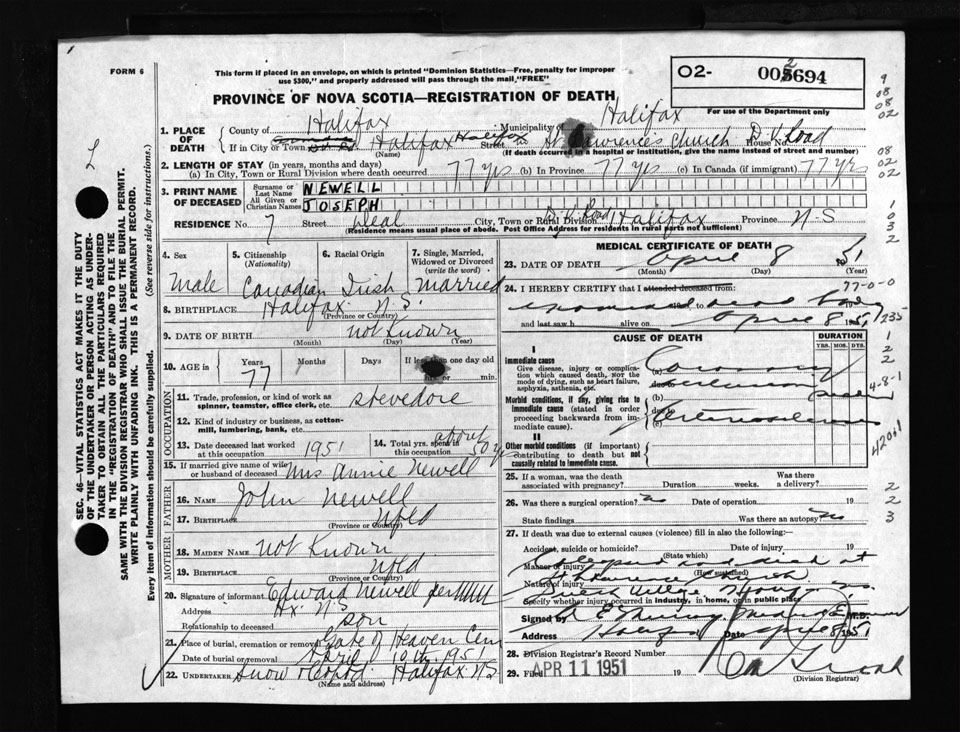 FORM 6
This form if placed in an envelope, on which is printed "Dominion Statistics—Free, penalty for improper
use $300," and properly addressed will pass through the mail, "FREE"
O2- 005694
2
For use of the Department only
PROVINCE OF NOVA SCOTIA—REGISTRATION OF DEATH
1. PLACE OF DEATH
County of Halifax Municipality of Halifax
If in City or Town Halifax Halifax Street St Lawrence's Church D. V. Road House No.
(Name) (If death occurred in a hospital or institution, give the name instead of street and number)
2. LENGTH OF STAY (in years, months and days)
(a) In City, Town or Rural Division where death occurred 77 yrs (b) In Province 77 yrs (c) In Canada (if immigrant) 77 yrs
3. PRINT NAME OF DECEASED
Surname or Last Name NEWELL
All Given or Christian Names JOSEPH
RESIDENCE No. 7 Street Deal City, Town or Rural Division Halifax Province N-S
(Residence means usual place of abode. Post Office Address for residents in rural parts not sufficient)
4. Sex 5. Citizenship (Nationality) 6. Racial Origin 7. Single, Married, Widowed or Divorced (write the word)
Male Canadian Irish Married
8. BIRTHPLACE Halifax N.S.
(Province or Country)
9. DATE OF BIRTH not Known
(Month) (Day) (Year)
10. AGE in Years Months Days If less than one day old
77 hrs or min.
OCCUPATION
11. Trade, profession, or kind of work as spinner, teamster, office clerk, etc. Stevedore
12. Kind of industry or business, as cotton-mill, lumbering, bank, etc.
13. Date deceased last worked at this occupation 1951 14. Total yrs. spent in this occupation about 50 yrs
15. If married give name of wife or husband of deceased Mrs Annie Newell
FATHER
16. Name John Newell
17. Birthplace Nfld
(Province or Country)
MOTHER
18. Maiden Name Not Known
19. Birthplace Nfld
(Province or Country)
20. Signature of informant Edward Newell per
Address Hx. N.S.
Relationship to deceased son
21. Place of burial, cremation or removal Gate of Heaven Cem
Date of burial or removal April 10th 1951
22. UNDERTAKER Snow Halifax N.S.
(Name and address)
MEDICAL CERTIFICATE OF DEATH
23. DATE OF DEATH April 8 1951
(Month) (Day) (Year)
77-0-0
24. I HEREBY CERTIFY that I attended deceased from:
examined dead body
and last saw alive on April 8 1951
CAUSE OF DEATH
DURATION
YRS. MOS. DYS.
I
Immediate cause
Give disease, injury or complication which caused death, not the mode of dying, such as heart failure, asphyxia, asthenia, etc.
(a) Coronary
due to
(b)
Morbid conditions, if any, giving rise to immediate cause (stated in order proceeding backwards from immediate cause).
due to
(c)
II
Other morbid conditions (if important) contributing to death but not causally related to immediate cause.
4-8-1
420.1
25. If a woman, was the death associated with pregnancy? Duration weeks. Was there a delivery?
26. Was there a surgical operation? no Date of operation 19
State findings Was there an autopsy? no
27. If death was due to external causes (violence) fill in also the following:—
Accident, suicide or homicide? Date of injury 19
(State which)
Manner of injury Collapsed and died at
(How sustained)
Nature of injury St Lawrence Church
Specify whether injury occurred in industry, in home, or in public place
Signed by M.D.
Address Halifax Date April 8 1951
28. Division Registrar's Record Number
29. Filed APR 11 1951 19
(Division Registrar)
SEC. 46—VITAL STATISTICS ACT MAKES IT THE DUTY
OF THE UNDERTAKER OR PERSON ACTING AS UNDER-
TAKER TO OBTAIN ALL THE PARTICULARS REQUIRED
IN THE "REGISTRATION OF DEATH" AND TO FILE THE
SAME WITH THE DIVISION REGISTRAR WHO SHALL ISSUE THE BURIAL PERMIT.
WRITE PLAINLY WITH UNFADING INK. THIS IS A PERMANENT RECORD.
Every item of information should be carefully supplied. (See reverse side for instructions.)
9
08
08
02
08
02
02
1
0
3
2
235
1
2
2
2
2
3